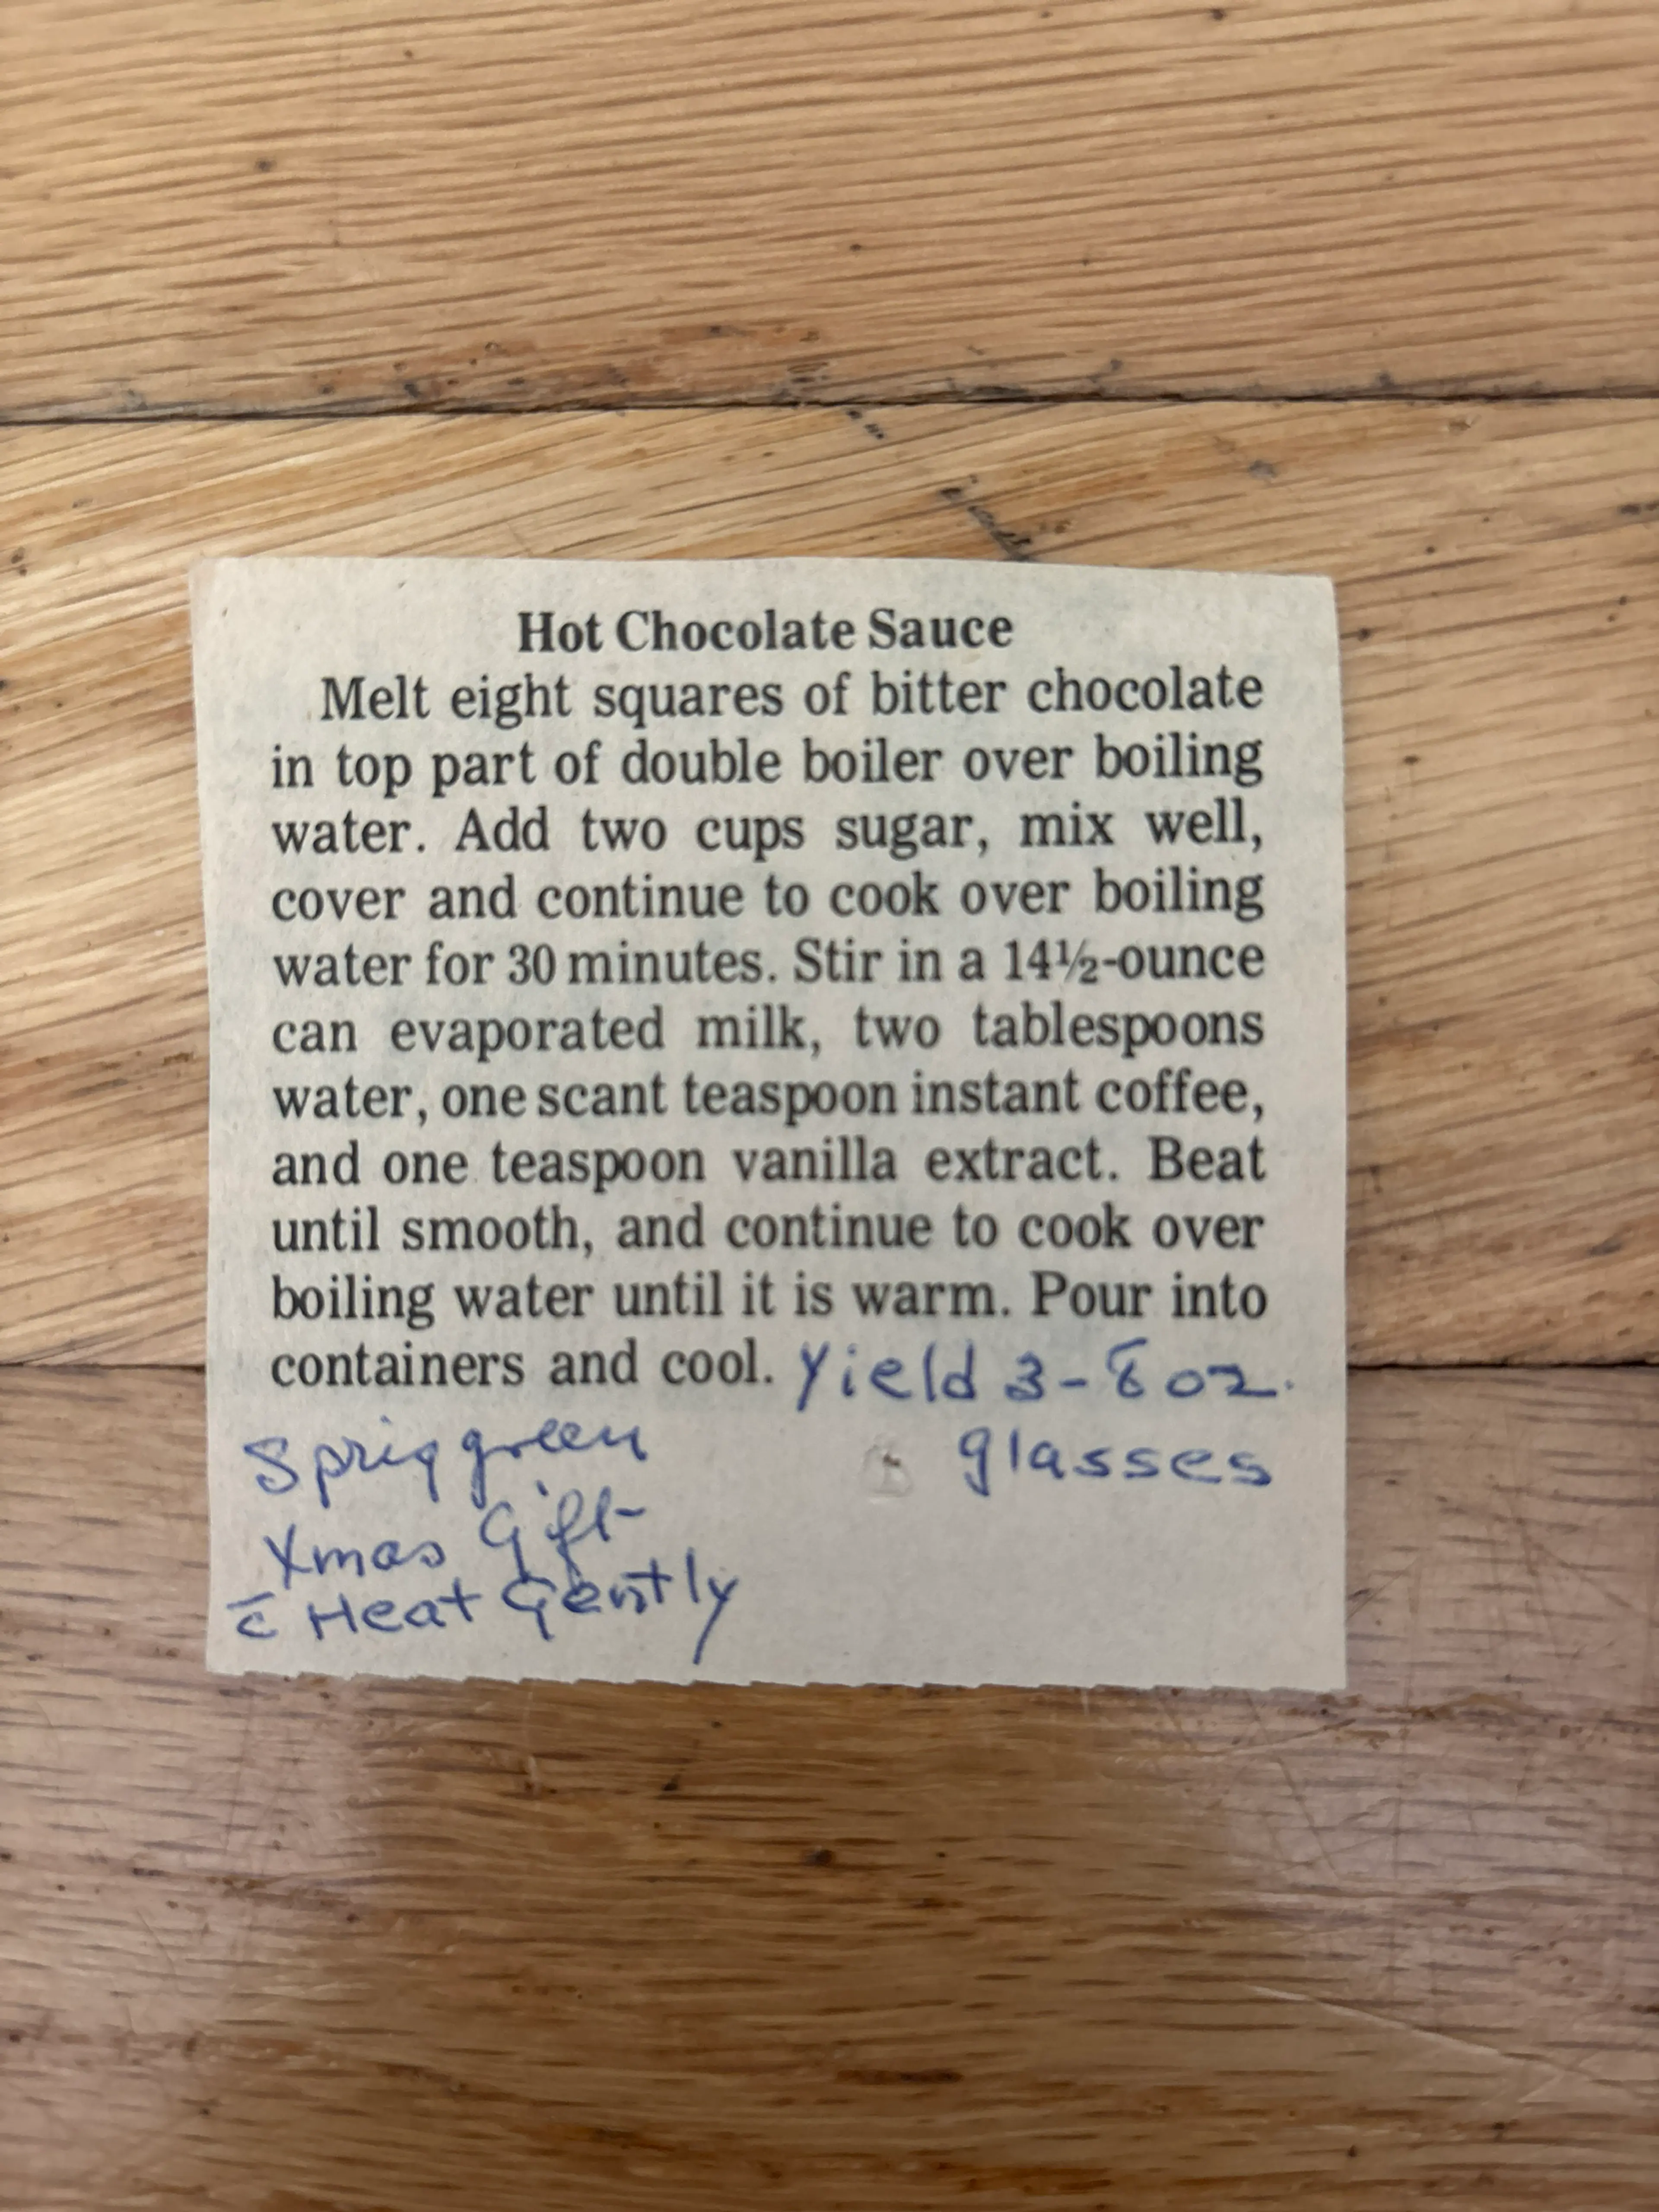 Hot Chocolate Sauce
Melt eight squares of bitter chocolate
in top part of double boiler over boiling
water. Add two cups sugar, mix well,
cover and continue to cook over boiling
water for 30 minutes. Stir in a 14½-ounce
can evaporated milk, two tablespoons
water, one scant teaspoon instant coffee,
and one teaspoon vanilla extract. Beat
until smooth, and continue to cook over
boiling water until it is warm. Pour into
containers and cool. Yield 3-8 oz.
glasses
Sprig green
Xmas Gift
c̄ Heat Gently